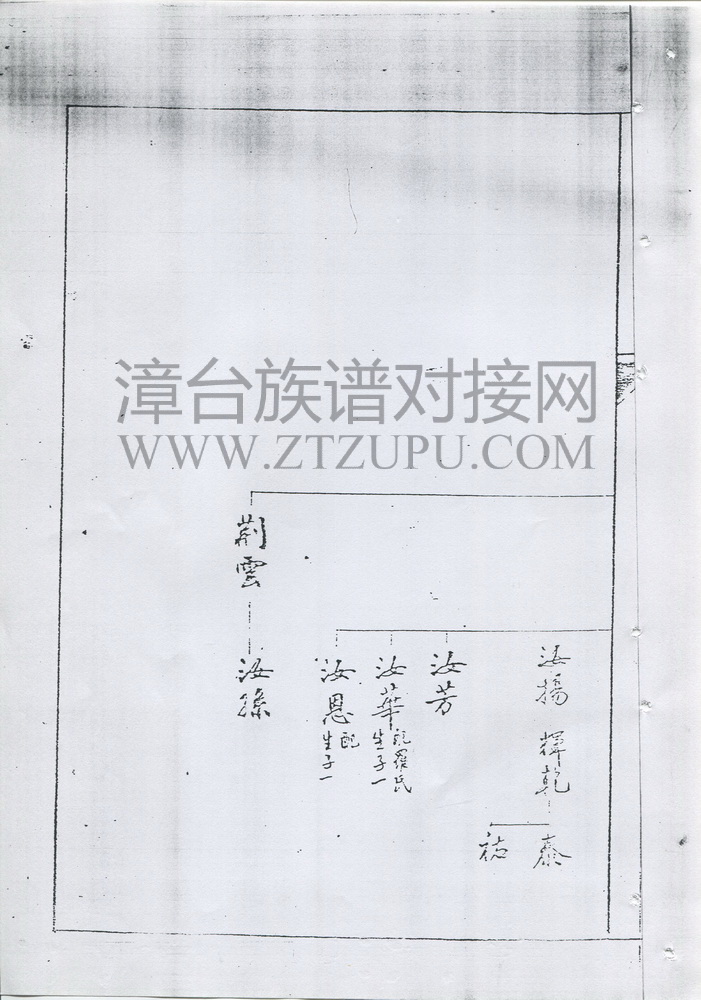 漳台族谱对接网
WWW.ZTZUPU.COM
汝揚
揮乾
泰
禧
汝芳
汝華
配羅氏
生子一
汝恩
配
生子一
荊雲
汝